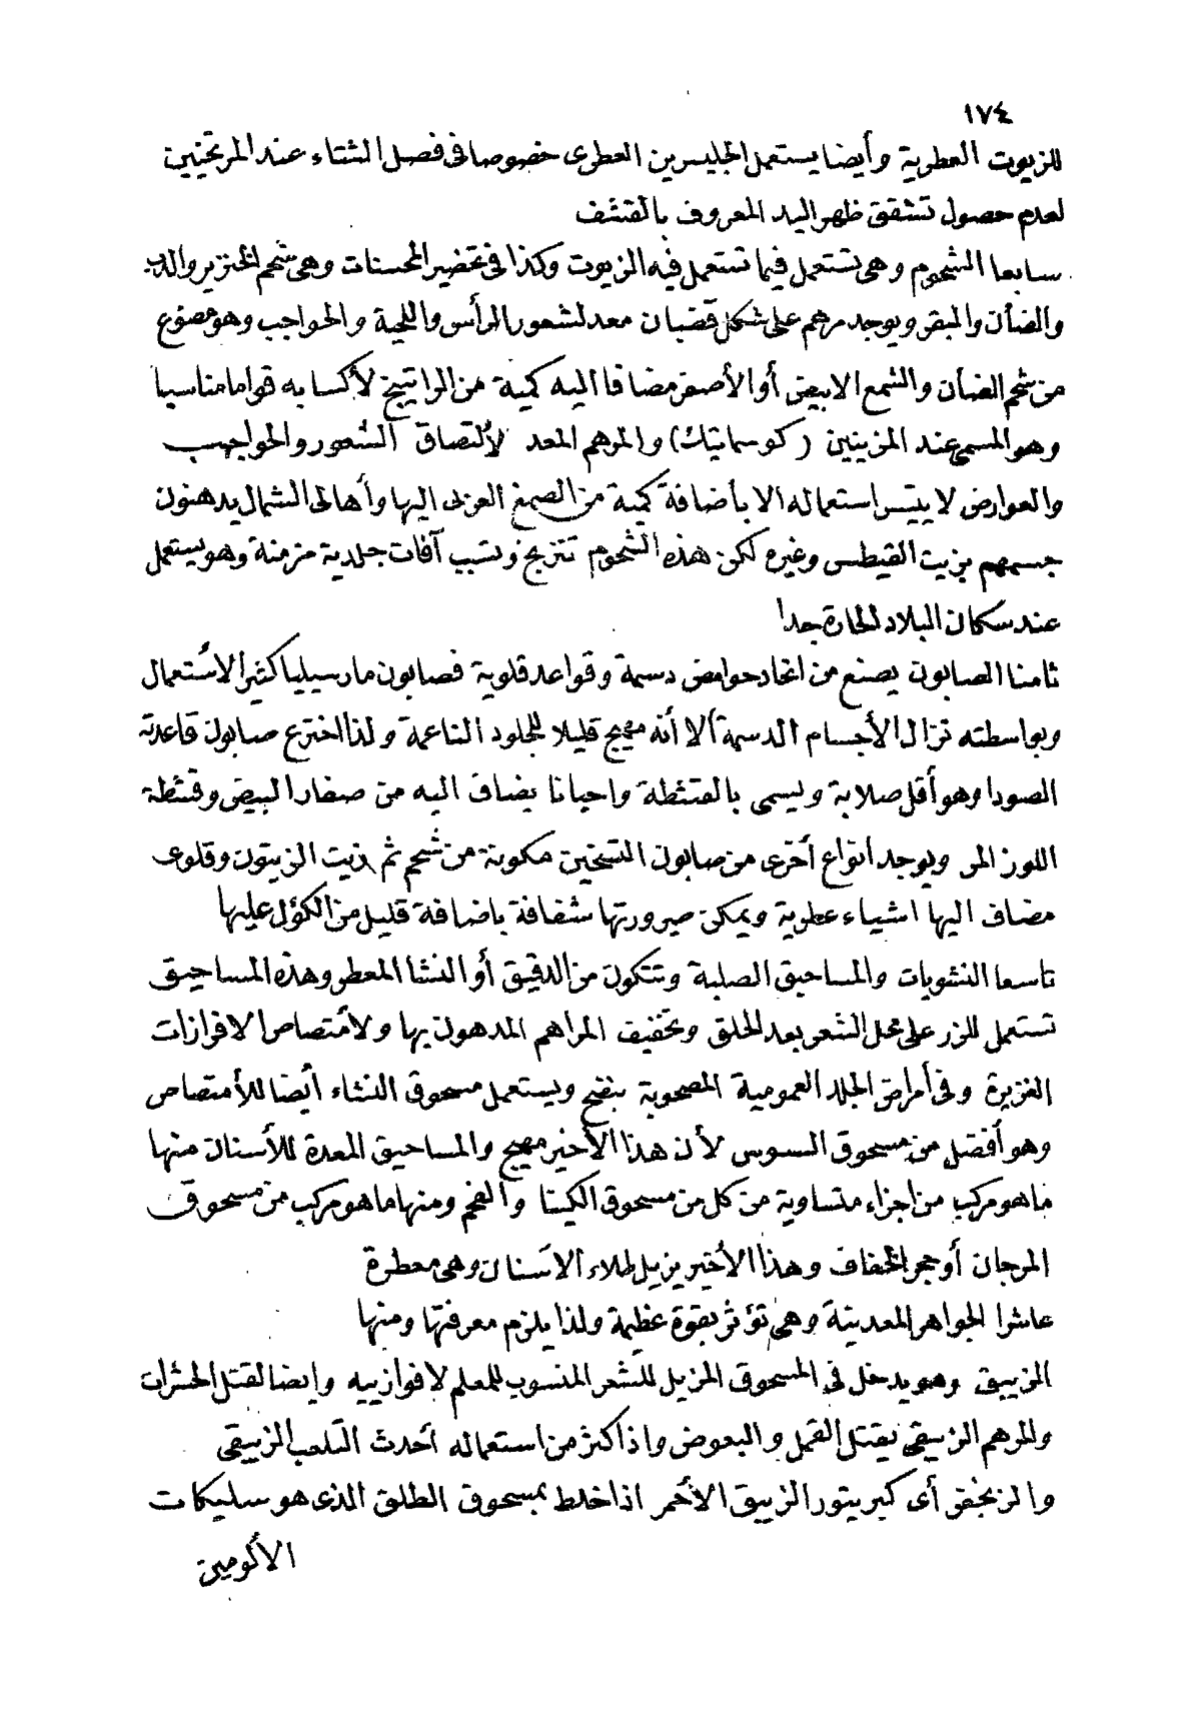 ١٧٤
للزيوت العطرية وأيضا يستعمل الجليسرين العطرى خصوصا فى فصل الشتاء عند المرتخنين
لعدم حصول تشقق ظهر اليد المعروف بالقشف
سابعا الشحوم وهى تستعمل فيما تستعمل فيه الزيوت وكذا فى تحضير المحسنات وهى شحم الخنزير والدب
والضأن والبقر ويوجد مرهم على شكل قضبان معد لشعور الرأس واللحية والحواجب وهو مصنوع
من شحم الضأن والشمع الابيض أو الأصفر مضافا اليه كمية من الراتينج لأكسابه قواما مناسبا
وهو المسمى عند المزينين (كوسماتيك) والمرهم المعد لألتصاق الشعور والحواجب
والعوارض لا يتيسر استعماله الا بأضافة كمية من الصمغ العربى اليها وأهالى الشمال يدهنون
جسمهم بزيت القيطس وغيره لكن هذه الشحوم تتزنخ وتسبب آفات جلدية مزمنة وهو يستعمل
عند سكان البلاد الحارة جدا
ثامنا الصابون يصنع من اتحاد حوامض دسمة وقواعد قلوية فصابون مارسيليا كثير الاستعمال
وبواسطته تزال الأجسام الدسمة ألا أنه مهيج قليلا للجلود الناعمة ولذا اخترع صابون قاعدته
الصودا وهو أقل صلابة ويسمى بالقشطة واحيانا يضاف اليه من صفار البيض وقشطة
اللوز المر ويوجد انواع أخرى من صابون التسخين مكونة من شحم ثم زيت الزيتون وقلوى
مضاف اليها اشياء عطرية ويمكن صيرورتها شفافة باضافة قليل من الكؤل عليها
تاسعا النشويات والمساحيق الصلبة وتتكون من الدقيق أو النشا المعطر وهذه المساحيق
تستعمل للزر على محل الشعر بعد الحلق وتخفيف المراهم المدهون بها ولأمتصاص الافرازات
الغزيرة وفى أمراض الجلد العمومية المصحوبة بنضح ويستعمل مسحوق النشاء أيضا للأمتصاص
وهو أفضل من مسحوق السوس لأن هذا الأخير مهيج والمساحيق المعدة للأسنان منها
ما هو مركب من اجزاء متساوية من كل من مسحوق الكينا والفحم ومنها ما هو مركب من مسحوق
المرجان أو حجر الخفاف وهذا الأخير يزيل طلاء الاسنان وهى معطرة
عاشرا الجواهر المعدنية وهى تؤثر بقوة عظيمة ولذا يلزم معرفتها ومنها
الزيبق وهو يدخل فى المسحوق المزيل للشعر المنسوب للمعلم لافوازييه وايضا لقتل الحشرات
والمرهم الزيبقى يقتل القمل والبعوض واذا كثر من استعماله أحدث التلعب الزيبقى
والزنجفر أى كبريتور الزيبق الأحمر اذا خلط بمسحوق الطلق الذى هو سليكات
الألومين